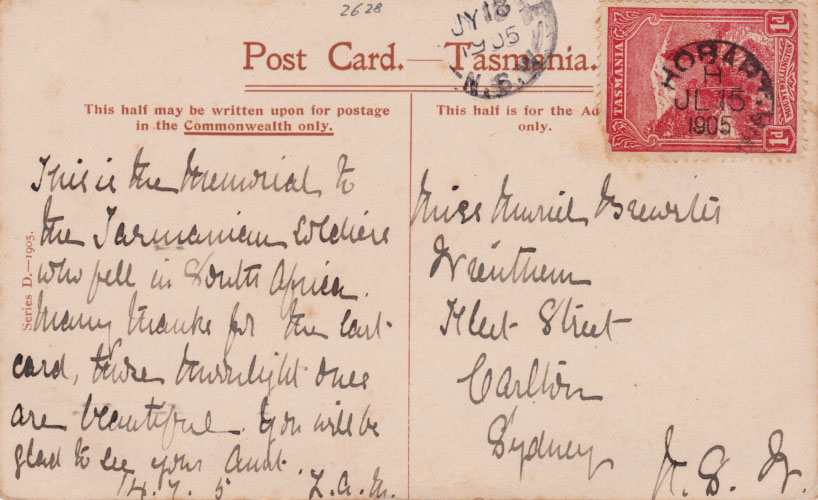 2628
JY 18
1905
N.S.W.
Post Card. — Tasmania.
TASMANIA
1d
1d
HOBART
H
JL 15
1905
This half may be written upon for postage
in the Commonwealth only.
This half is for the Ad
only.
Series D.—1905.
This is the Memorial to
the Tasmanian soldiers
who fell in South Africa.
Many thanks for the last
card, those moonlight ones
are beautiful. You will be
glad to see your Aunt.
14.7.5 L.A.M.
Miss Muriel Brewster
Wrentham
Fleet Street
Carlton
Sydney
N.S.W.